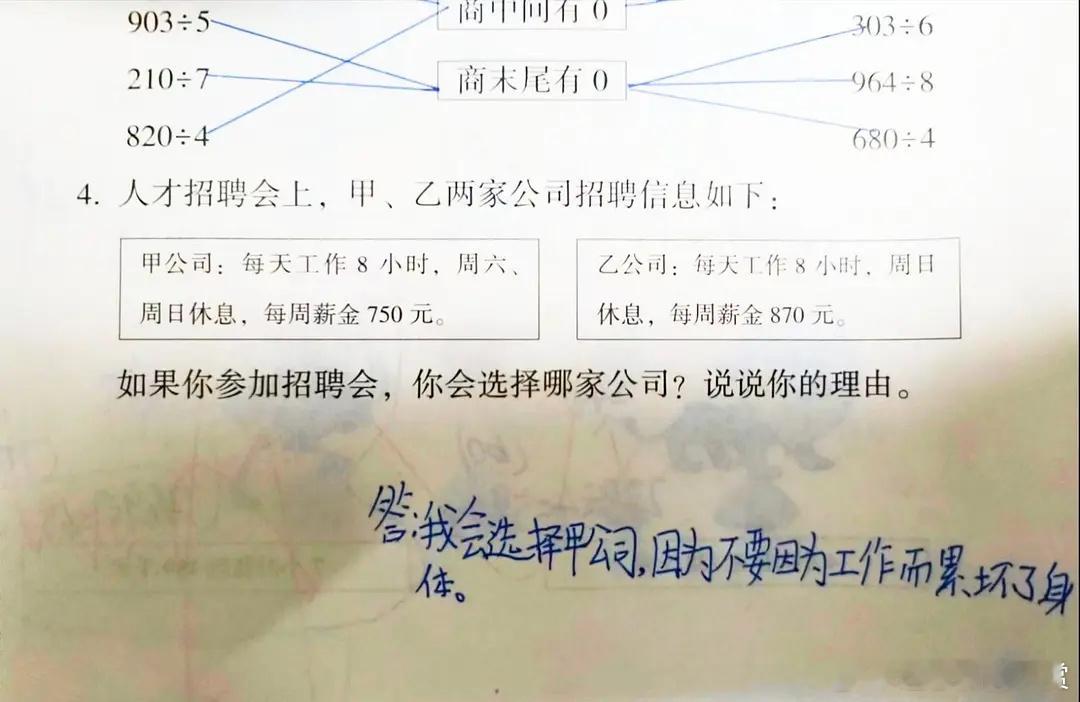 商中间有 0
903÷5
303÷6
210÷7
商末尾有 0
964÷8
820÷4
680÷4
4. 人才招聘会上，甲、乙两家公司招聘信息如下：
甲公司：每天工作 8 小时，周六、
周日休息，每周薪金 750 元。
乙公司：每天工作 8 小时，周日
休息，每周薪金 870 元。
如果你参加招聘会，你会选择哪家公司？说说你的理由。
答:我会选择甲公司,因为不要因为工作而累坏了身
体。